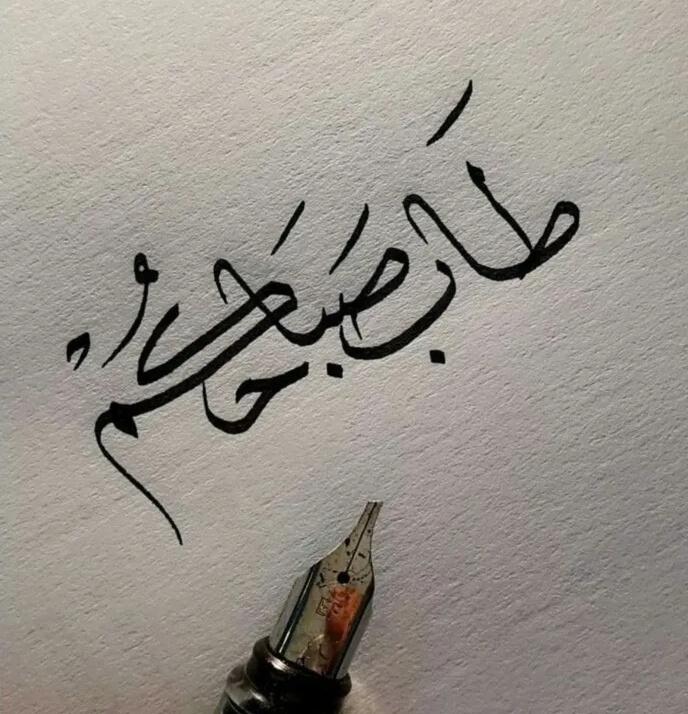 طاب صباحكم